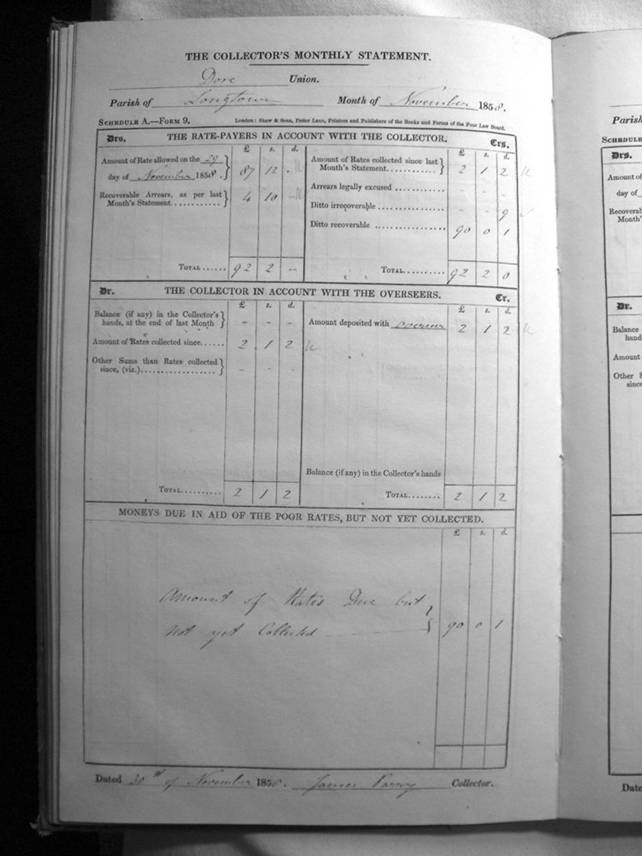 THE COLLECTOR'S MONTHLY STATEMENT.
Dore Union.
Parish of Longtown Month of November 1858.
SCHEDULE A.—FORM 9. London: Shaw & Sons, Fetter Lane, Printers and Publishers of the Books and Forms of the Poor Law Board.
Drs. THE RATE-PAYERS IN ACCOUNT WITH THE COLLECTOR. Crs.
£ s. d. £ s. d.
Amount of Rate allowed on the 29
day of November 1858. } 87 12 -
Recoverable Arrears, as per last
Month's Statement............ } 4 10 -
TOTAL...... 92 2 -
Amount of Rates collected since last
Month's Statement............ } 2 1 2
Arrears legally excused ............... - - -
Ditto irrecoverable .................... - - 9
Ditto recoverable .................... 90 0 1
TOTAL........ 92 2 0
Dr. THE COLLECTOR IN ACCOUNT WITH THE OVERSEERS. Cr.
£ s. d. £ s. d.
Balance (if any) in the Collector's
hands, at the end of last Month } - - -
Amount of Rates collected since...... 2 1 2
Other Sums than Rates collected
since, (viz.)................... } - - -
TOTAL.......... 2 1 2
Amount deposited with overseer 2 1 2
Balance (if any) in the Collector's hands
TOTAL........ 2 1 2
MONEYS DUE IN AID OF THE POOR RATES, BUT NOT YET COLLECTED.
£ s. d.
Amount of Rates Due but
Not yet Collected } 90 0 1
Dated 30th of November 1858. James Parry Collector.
Parish
SCHEDULE
Drs.
Amount of
day of
Recoverab
Month'
Dr.
Balance
hand
Amount
Other S
since
Date